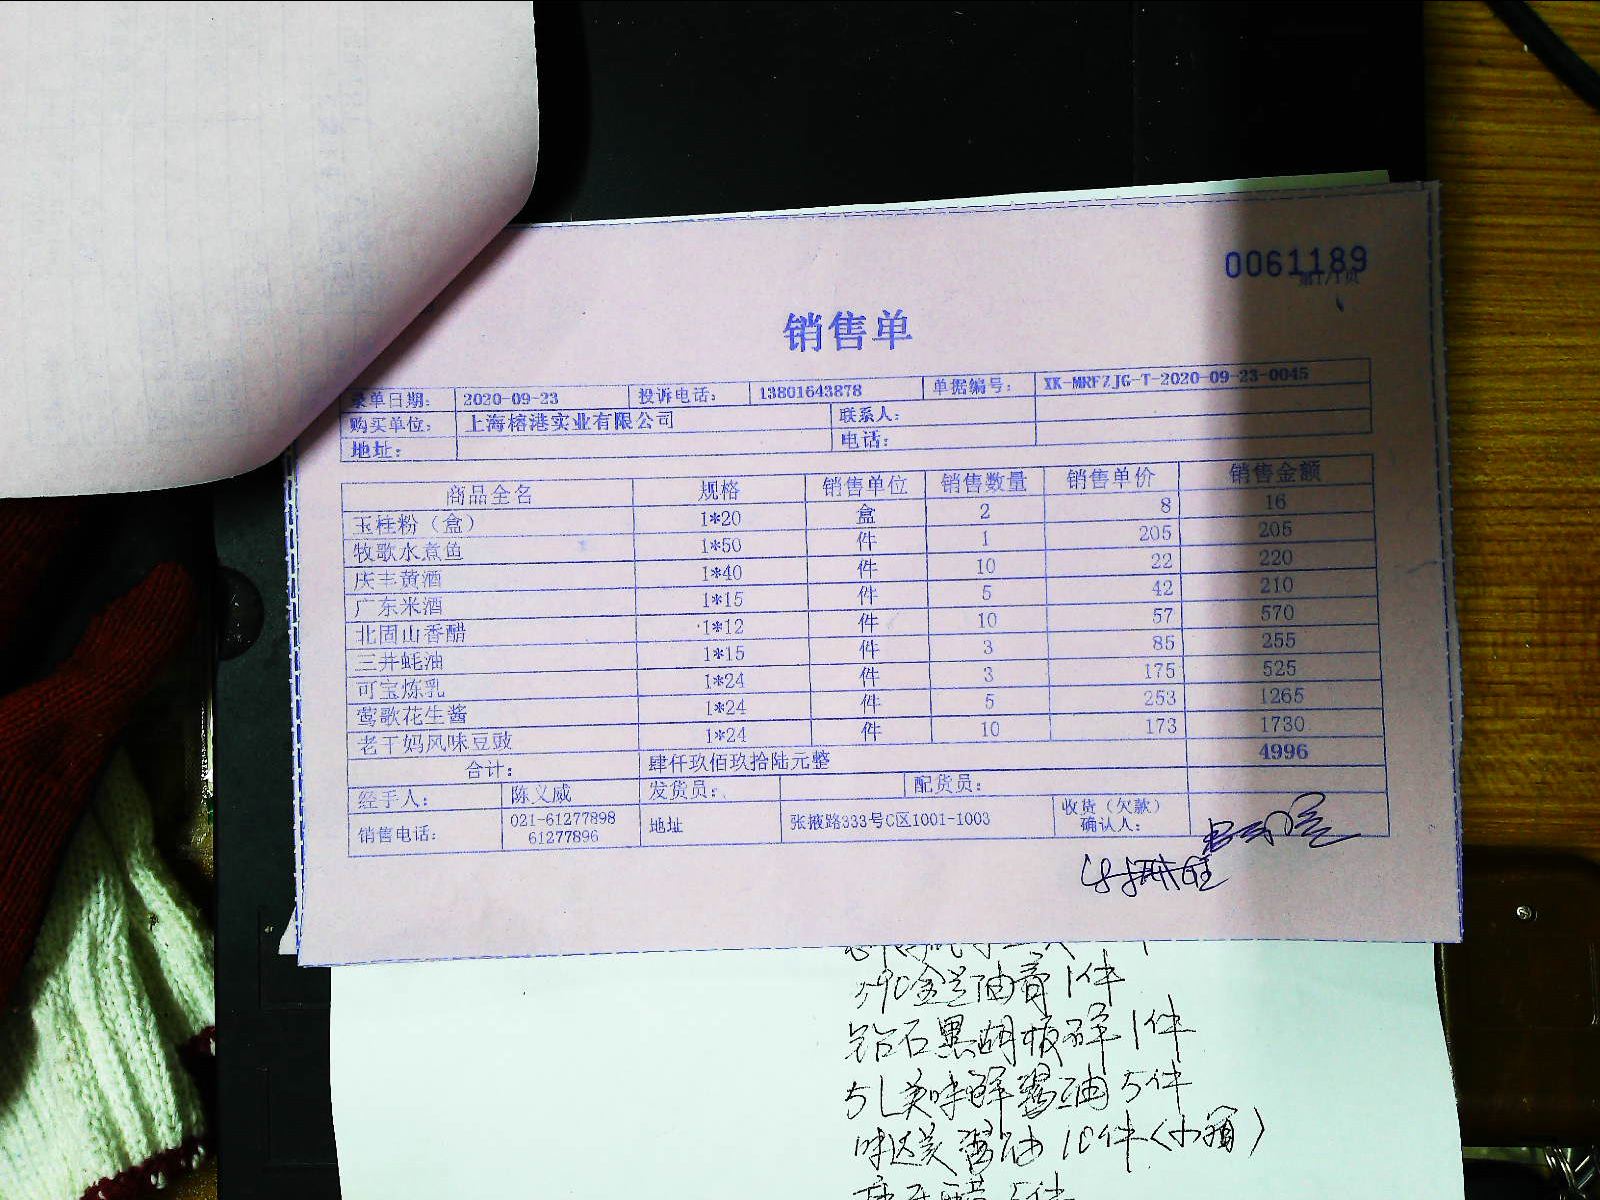 0061189
第1/1页
销售单
录单日期: 2020-09-23 投诉电话: 13801643878 单据编号: XK-MRFZJG-T-2020-09-23-0045
购买单位: 上海榕港实业有限公司 联系人:
地址: 电话:
商品全名 规格 销售单位 销售数量 销售单价 销售金额
玉桂粉（盒） 1*20 盒 2 8 16
牧歌水煮鱼 1*50 件 1 205 205
庆丰黄酒 1*40 件 10 22 220
广东米酒 1*15 件 5 42 210
北固山香醋 1*12 件 10 57 570
三井蚝油 1*15 件 3 85 255
可宝炼乳 1*24 件 3 175 525
莺歌花生酱 1*24 件 5 253 1265
老干妈风味豆豉 1*24 件 10 173 1730
合计: 肆仟玖佰玖拾陆元整 4996
经手人: 陈义威 发货员: 配货员:
销售电话: 021-61277898 61277896 地址 张掖路333号C区1001-1003 收货（欠款）确认人:
590金兰油膏1件
钻石黑胡椒碎1件
5L美味鲜酱油5件
味达美酱油10件